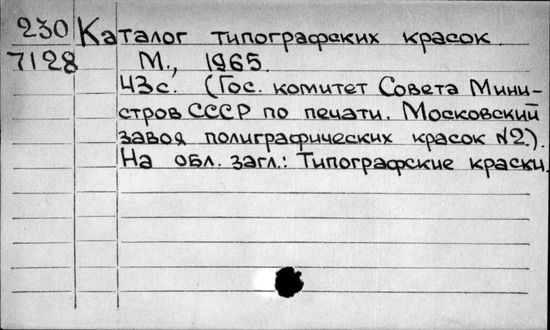 230 Каталог типографских красок
7128 М., 1965.
43с. (Гос. комитет Совета Мини-
стров СССР по печати. Московский
завод полиграфических красок №2.).
На обл. загл.: Типографские краски.